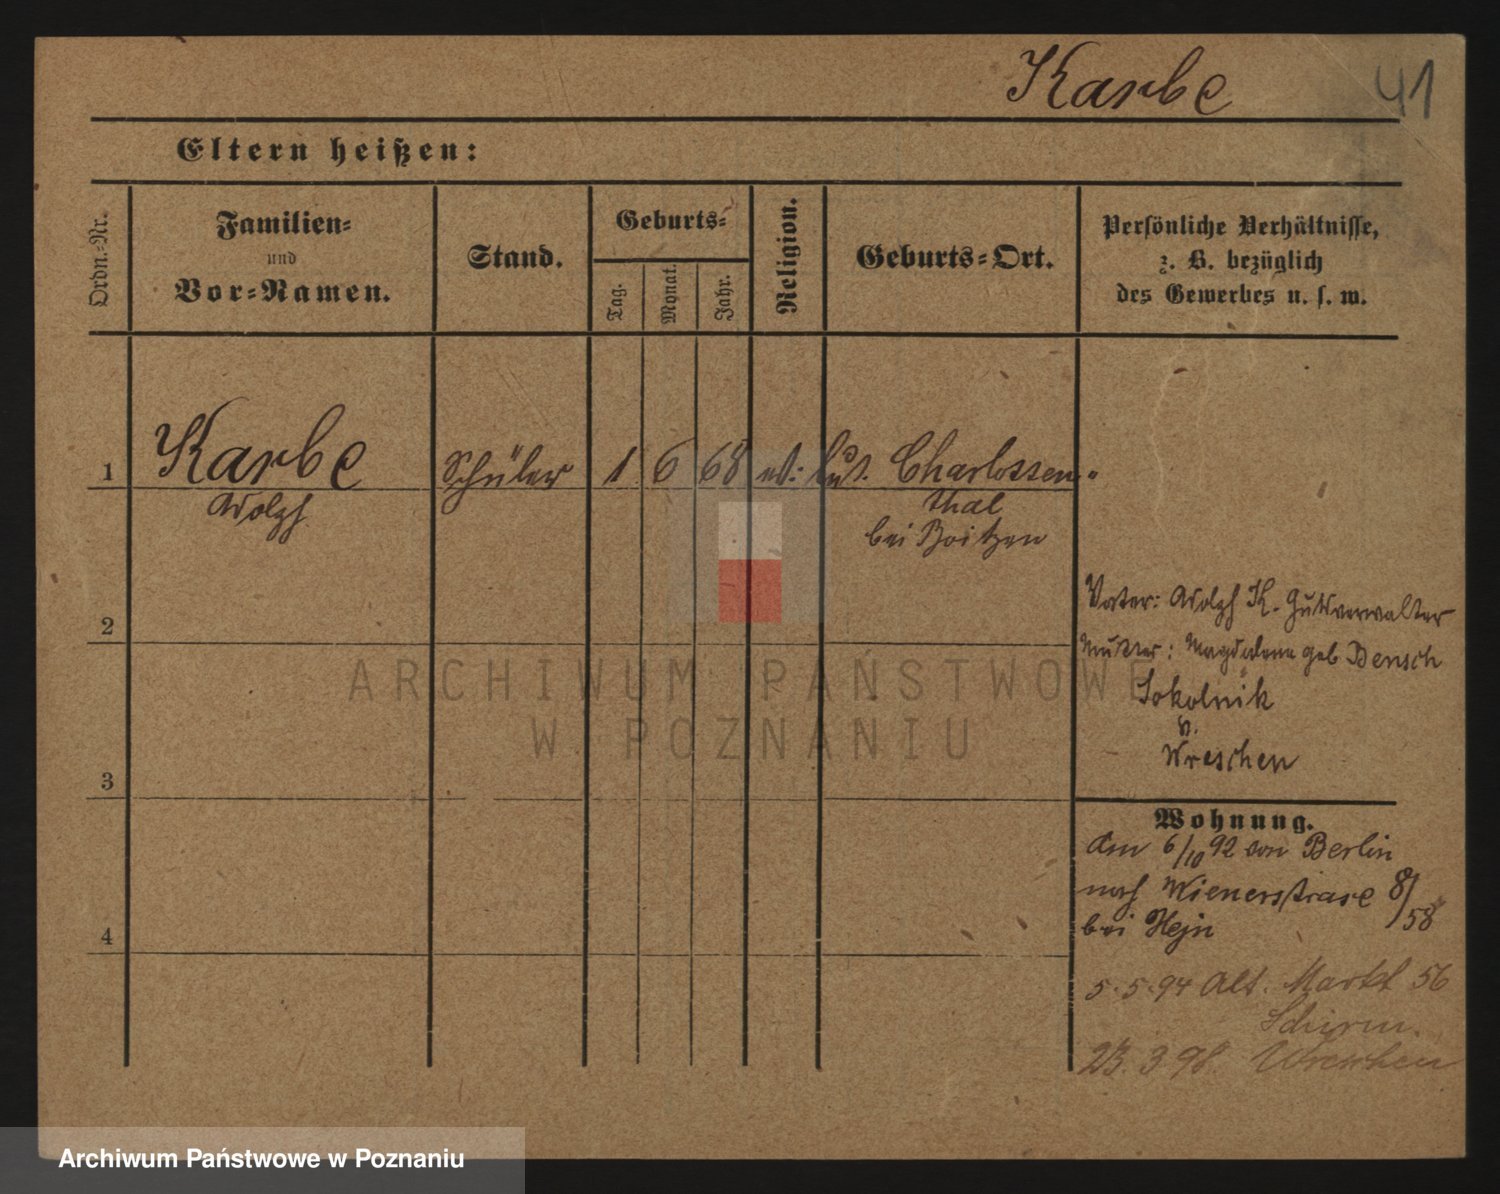 Karbe 41
Eltern heißen:
Ordn.-Nr.
Familien-
und
Vor-Namen.
Stand.
Geburts-
Tag.
Monat.
Jahr.
Religion.
Geburts-Ort.
Persönliche Verhältnisse,
z. B. bezüglich
des Gewerbes u. s. w.
1 Karbe Schüler 1 6 68 ev: lut. Charlotten-
Adolph thal
bei Boitzen
Vater: Adolph K. Gutsverwalter
2
Mutter: Magdalena geb Bensch
Sokolnik
b.
Wreschen
3
Wohnung.
Am 6/10 92 von Berlin
nach Wienerstrase 8/58
bei Hejn
4
5.5.94 Alt. Markt 56
Schirm.
23.3.98. Wreschen
ARCHIWUM PAŃSTWOWE
W POZNANIU
Archiwum Państwowe w Poznaniu